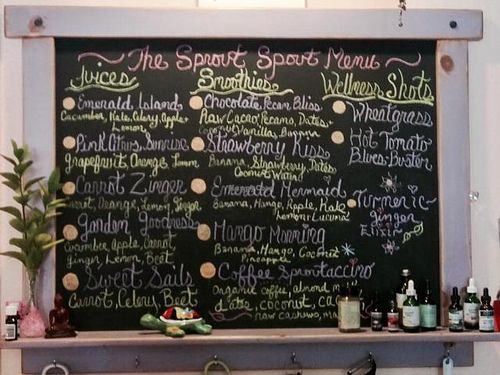 The Sprout Spout Menu
Juices
Emerald Island
Cucumber, Kale, Celery, Apple,
Lemon
Pink Citrus Sunrise
grapefruit, Orange, Lemon
Carrot Zinger
Carrot, Orange, Lemon, Ginger
Garden Goodness
Cucumber, Apple, Carrot,
Ginger, Lemon, Beet
Sweet Sails
Carrot, Celery, Beet
Smoothies
Chocolate Pecan Bliss
Raw Cacao, Pecans, Dates,
Coconut, Vanilla, Banana
Strawberry Kiss
Banana, Strawberry, Dates,
Coconut Water
Emerald Mermaid
Banana, Mango, Apple, Kale
Lemon, Lucuma
Mango Morning
Banana, Mango, Coconut
Pineapple
Coffee Sproutaccino
Organic coffee, almond m
date, coconut, ca
raw cashews, ma
Wellness Shots
Wheatgrass
Hot Tomato
Blues-Buster
Turmeric
Ginger
Elixir